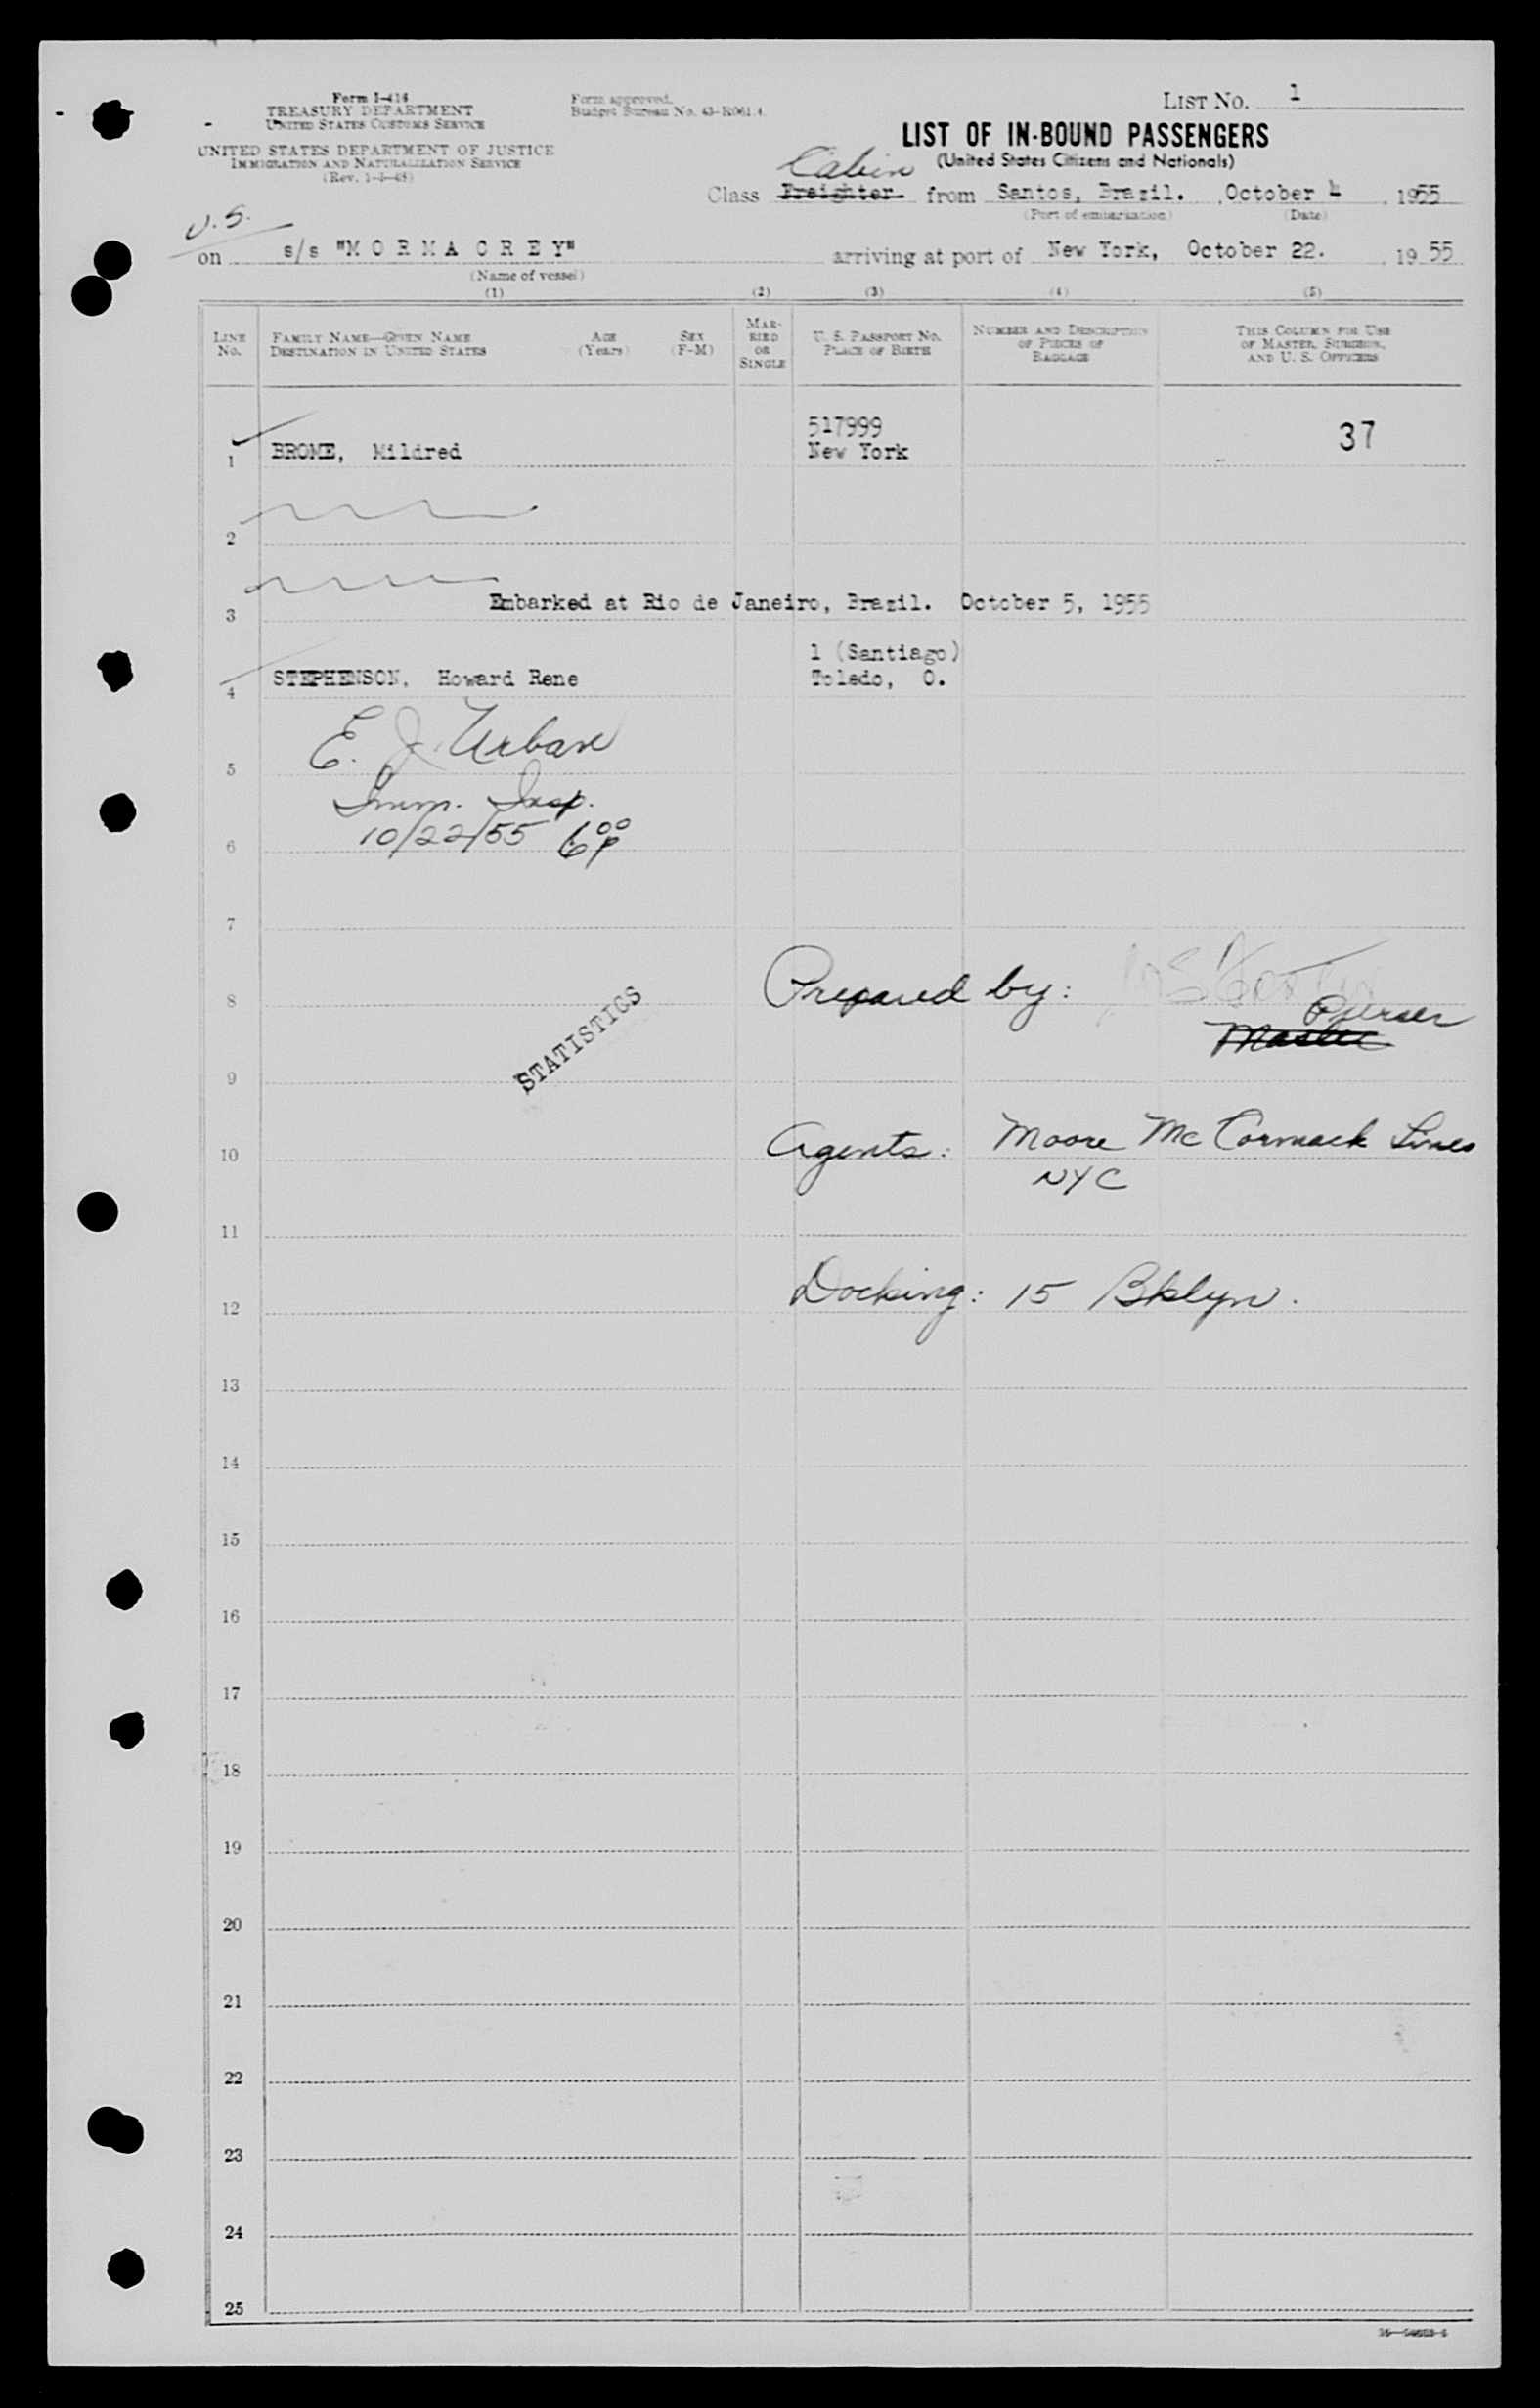 Form I-416
TREASURY DEPARTMENT
UNITED STATES CUSTOMS SERVICE
UNITED STATES DEPARTMENT OF JUSTICE
IMMIGRATION AND NATURALIZATION SERVICE
(Rev. 1-1-48)
Form approved.
Budget Bureau No. 43-R061.4.
LIST NO. 1
LIST OF IN-BOUND PASSENGERS
(United States Citizens and Nationals)
Cabin
Class Freighter from Santos, Brazil. , October 4 , 1955
(Port of embarkation) (Date)
U.S.
on s/s "M O R M A C R E Y" arriving at port of New York, October 22. , 19 55
(Name of vessel)
(1) (2) (3) (4) (5)
LINE No.
FAMILY NAME—GIVEN NAME
DESTINATION IN UNITED STATES
AGE (Years)
SEX (F-M)
MARRIED OR SINGLE
U. S. PASSPORT NO.
PLACE OF BIRTH
NUMBER AND DESCRIPTION OF PIECES OF BAGGAGE
THIS COLUMN FOR USE OF MASTER, SURGEON, AND U. S. OFFICERS
517999
1 BROME, Mildred New York 37
2
Embarked at Rio de Janeiro, Brazil. October 5, 1955
3
1 (Santiago)
4 STEPHENSON, Howard Rene Toledo, O.
E. J. Urban
5
Imm. Insp.
10/22/55 6 00 P
6
7
Prepared by:
8
Purser
Master
STATISTICS
9
Agents: Moore McCormack Lines
10
NYC
11
Docking: 15 Bklyn.
12
13
14
15
16
17
18
19
20
21
22
23
24
25